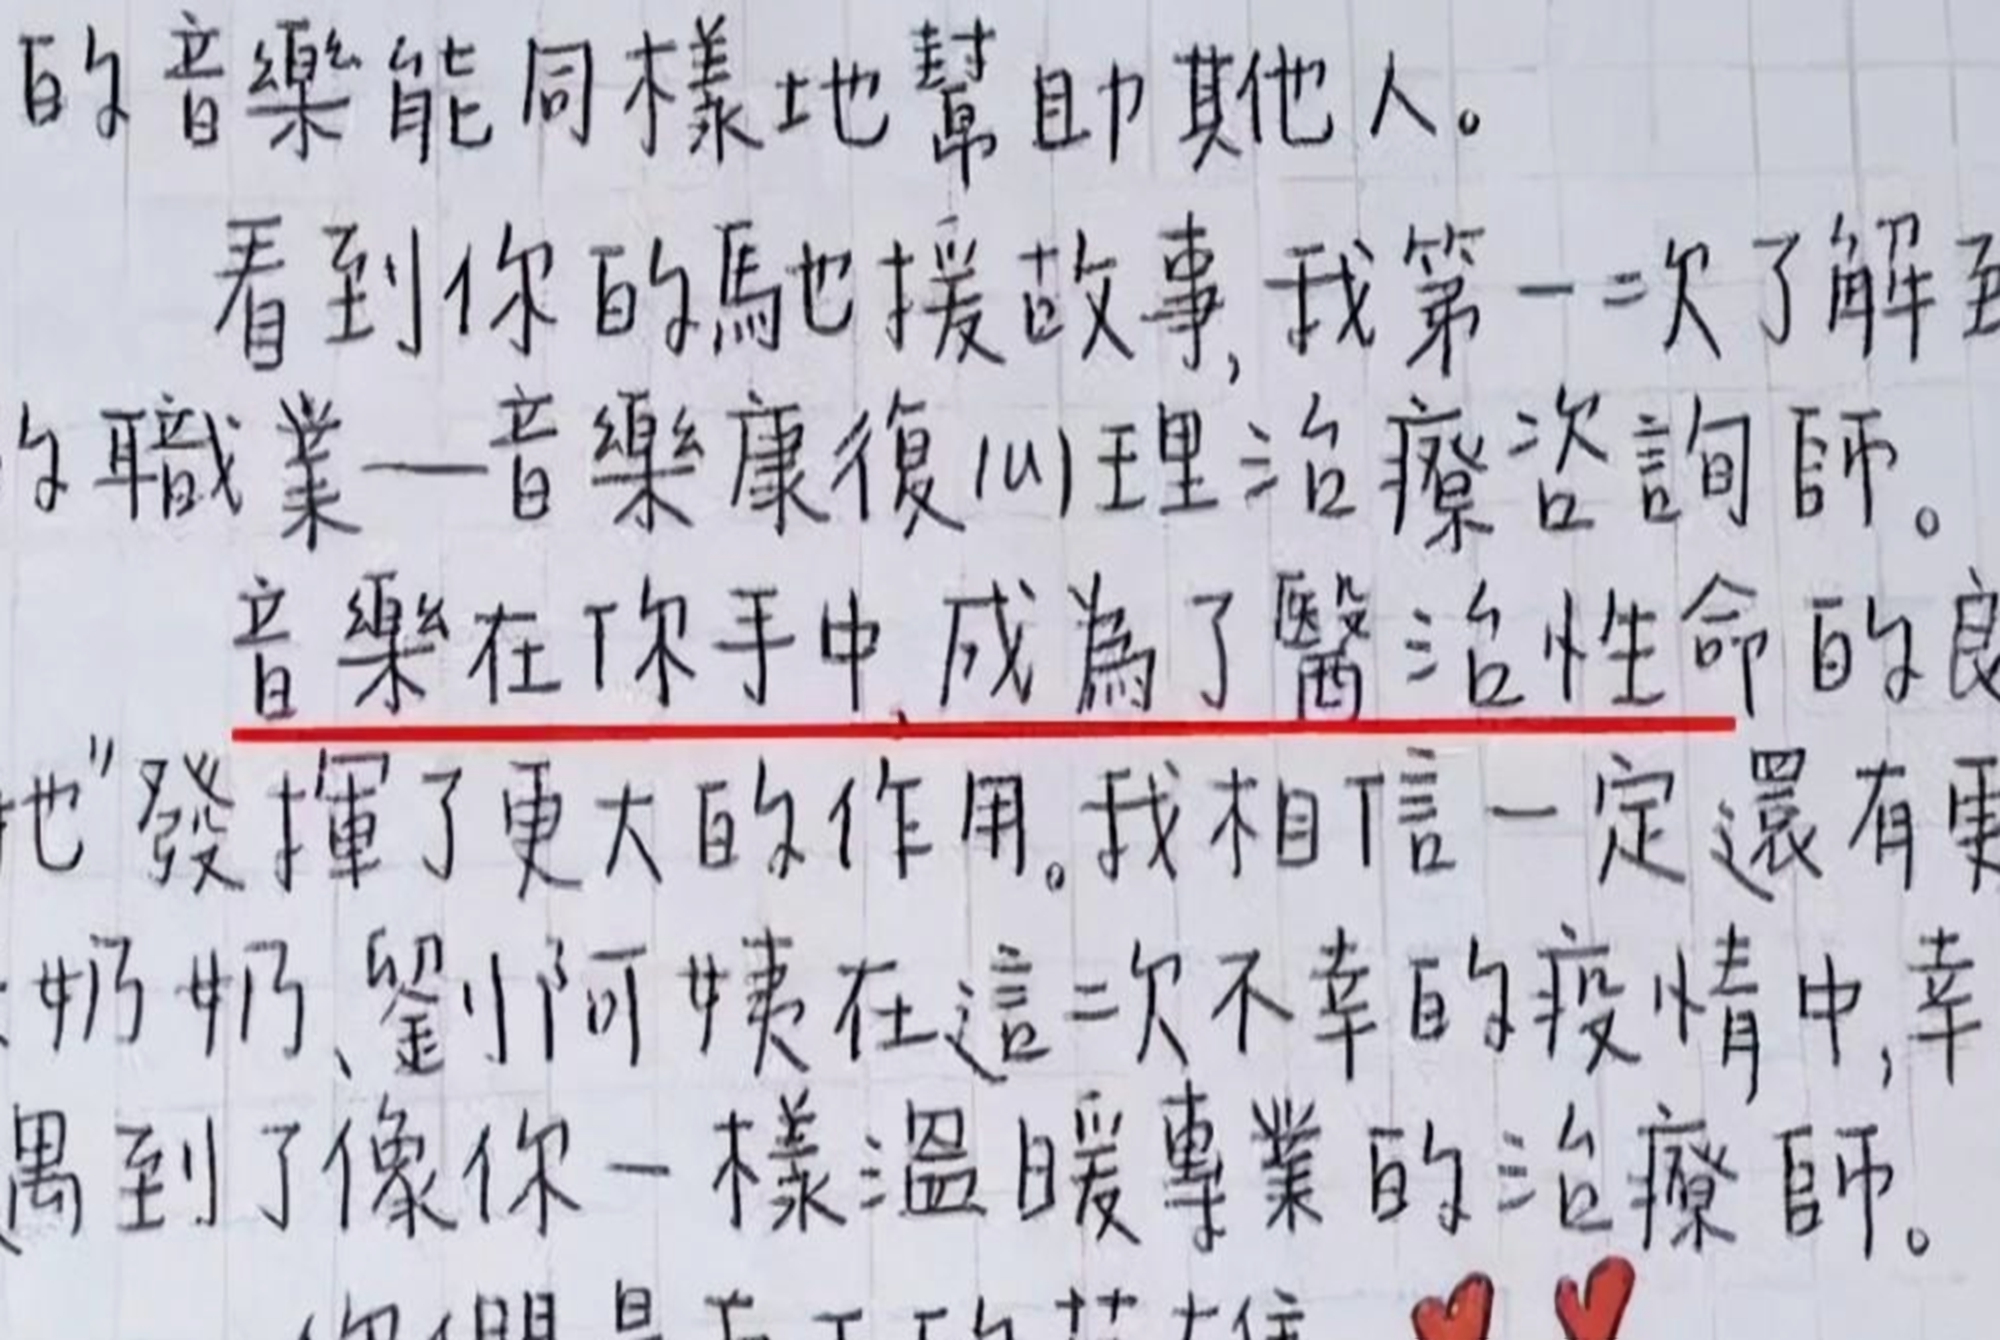 的音樂能同樣地幫助其他人。
看到你的馳援故事,我第一次了解到
的職業——音樂康復心理治療咨詢師。
音樂在你手中,成為了醫治性命的良
地"發揮了更大的作用。我相信一定還有更
奶奶、劉阿姨在這次不幸的疫情中,幸
遇到了像你一樣溫暖專業的治療師。
你們是